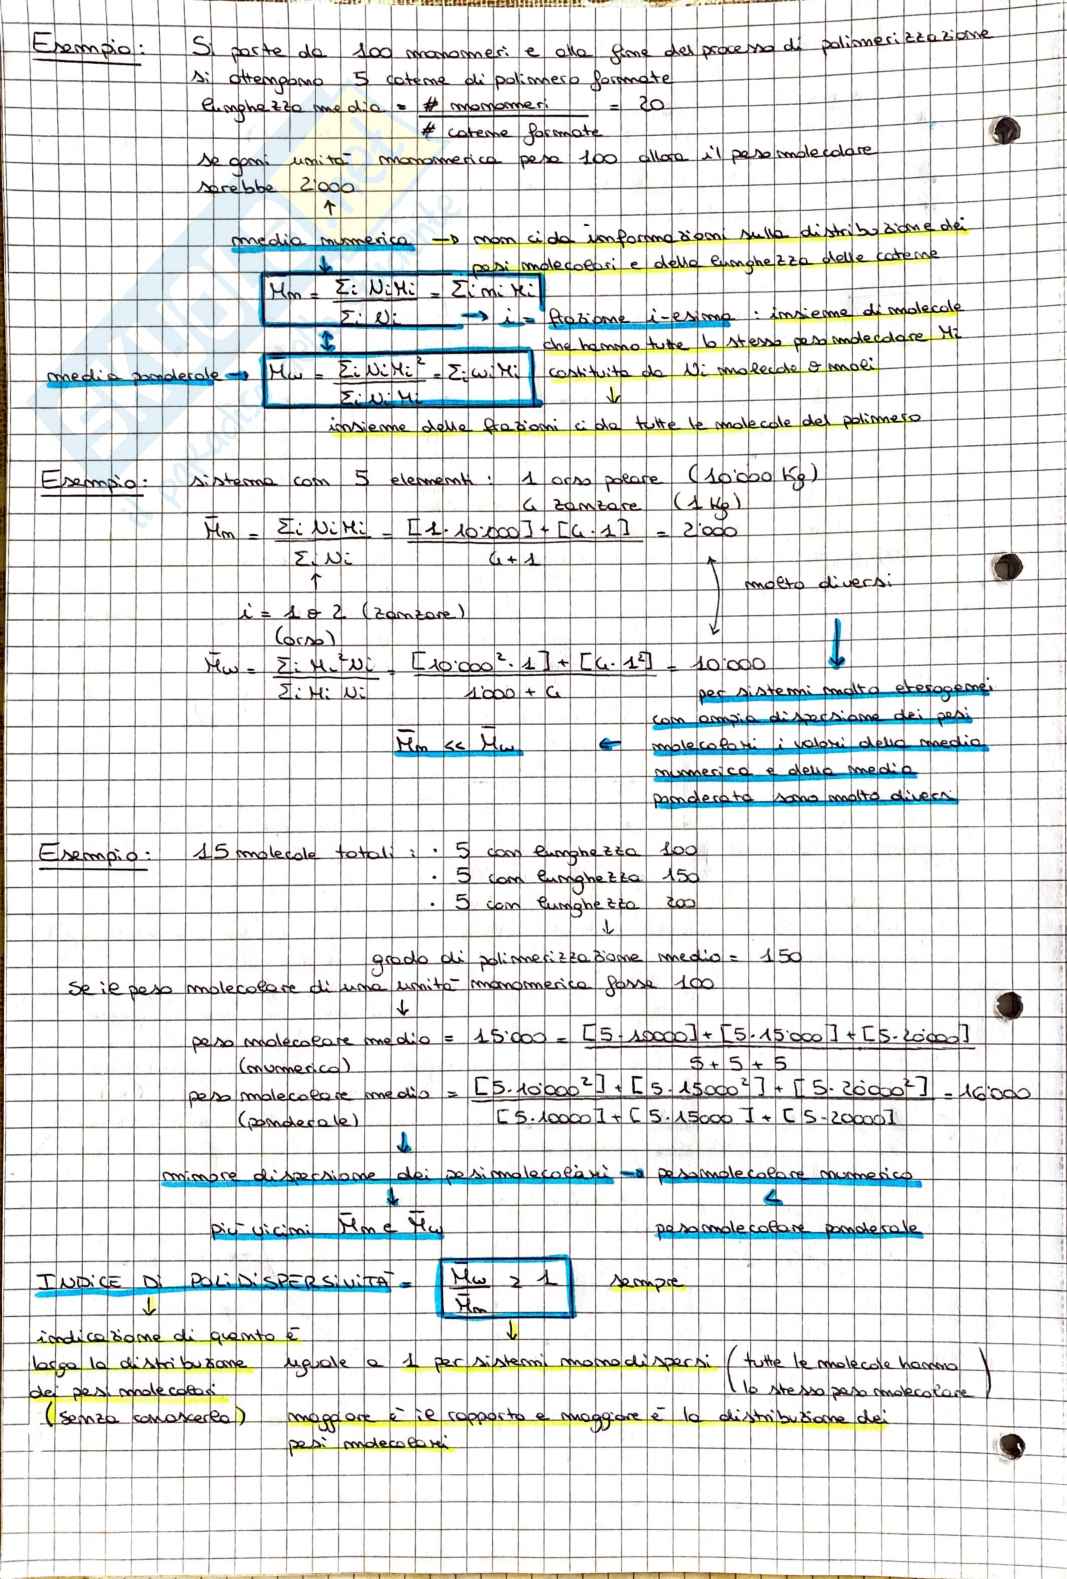 Esempio: Si parte da 100 monomeri e alla fine del processo di polimerizzazione
si ottengono 5 catene di polimero formate
lunghezza media = # monomeri / # catene formate = 20
se ogni unità monomerica pesa 100 allora il peso molecolare
sarebbe 2'000
↑
media numerica → non ci da informazioni sulla distribuzione dei
pesi molecolari e della lunghezza delle catene
M̄n = Σi NiMi / Σi Ni = Σi ni Mi
→ i = frazione i-esima : insieme di molecole
che hanno tutte lo stesso peso molecolare Mi
media ponderale → M̄w = Σi NiMi² / Σi NiMi = Σi wiMi costituita da Ni molecole o moli
↓
insieme delle frazioni ci da tutte le molecole del polimero
Esempio: sistema con 5 elementi : 1 orso polare (10'000 Kg)
4 zanzare (1 Kg)
M̄n = Σi NiMi / Σi Ni = [1·10'000] + [4·1] / 4+1 = 2'000
↑
molto diversi
i = 1 o 2 (zanzare)
(orso)
M̄w = Σi Mi²Ni / Σi Mi Ni = [10'000²·1] + [4·1²] / 1'000 + 4 = 10'000
per sistemi molto eterogenei
con ampia dispersione dei pesi
M̄n << M̄w ← molecolari i valori della media
numerica e della media
ponderata sono molto diversi
Esempio: 15 molecole totali : · 5 con lunghezza 100
· 5 con lunghezza 150
· 5 con lunghezza 200
↓
grado di polimerizzazione medio = 150
Se il peso molecolare di una unità monomerica fosse 100
↓
peso molecolare medio = 15'000 = [5·10000] + [5·15'000] + [5·20'000] / 5+5+5
(numerico)
peso molecolare medio = [5·10'000²] + [5·15000²] + [5·20'000²] / [5·10000] + [5·15000] + [5·20000] = 16'000
(ponderale)
↓
minore dispersione dei pesi molecolari → peso molecolare numerico
↓ <
più vicini M̄n e M̄w peso molecolare ponderale
INDICE DI POLIDISPERSIVITÀ = M̄w / M̄n ≥ 1 sempre
↓ ↓
indicazione di quanto è
larga la distribuzione uguale a 1 per sistemi monodispersi (tutte le molecole hanno
dei pesi molecolari lo stesso peso molecolare)
(senza conoscerla) maggiore è il rapporto e maggiore è la distribuzione dei
pesi molecolari